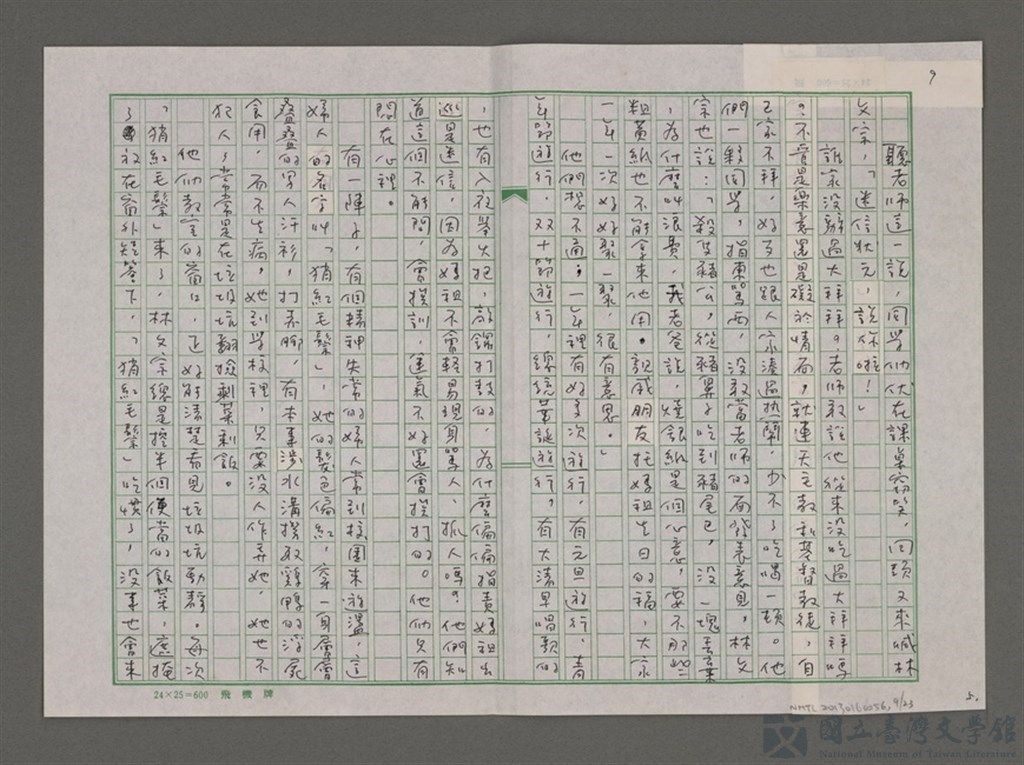 9
聽老師這一說,同學們伏在課桌窃笑,回頭又來喊林
文宗,「迷信狀元,說你啦!」
誰家沒辦過大拜拜?老師敢說他從來沒吃過大拜拜嗎
?不管是樂意還是礙於情面,就連天主教和基督教徒,自
己家不拜,好歹也跟人家湊過热鬧,少不了吃喝一頓。他
們一夥同學,指東罵西,沒敢當老師的面發表意見,林文
宗也說:「殺隻豬公,從豬鼻子吃到豬尾巴,沒一塊丟棄
,為什麼叫浪費,我老爸說,燒銀紙是個心意,要不那些
粗黃紙也不能拿來他用。親戚朋友托媽祖生日的福,大家
一年一次好好聚一聚,很有意思。」
他們想不通,一年裡有好多次遊行,有元旦遊行,青
年節遊行,双十節遊行,總統華誕遊行,有大清早唱歌的
,也有入夜舉火把,敲鑼打鼓的,為什麼偏偏指責媽祖出
巡是迷信,因為媽祖不會輕易現身罵人、抓人嗎?他們知
道這個不能問,會挨訓,運氣不好還會挨打的。他們只有
悶在心裡。
有一陣子,有個精神失常的婦人常到校園來遊盪,這
婦人的名字叫「猶紅毛鬃」,她的髮色偏紅,穿一身層層
疊疊的男人汗衫,打赤腳,有本事涉水溝撈取雞鴨的浮屍
食用,而不生病,她到學校裡,只要沒人作弄她,她也不
犯人,常常是在垃圾坑翻撿剩菜剩飯。
他們教室的窗口,正好能清楚看見垃圾坑動靜。每次
「猶紅毛鬃」來了,林文宗總是挖半個便當的飯菜,遮掩
了放在窗外矮簷下,「猶紅毛鬃」吃慣了,沒事也會來
24×25=600 飛機牌
5.
NMTL 20130160056, 9/23
國立臺灣文學館
National Museum of Taiwan Literature